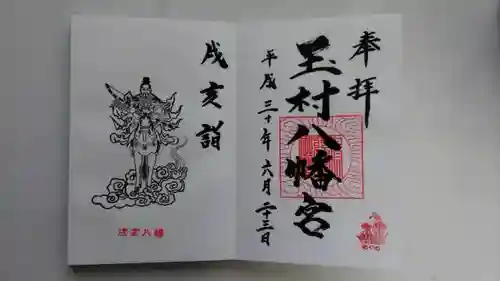 奉拝
玉村八幡宮
平成三十年六月二十三日
戌亥詣